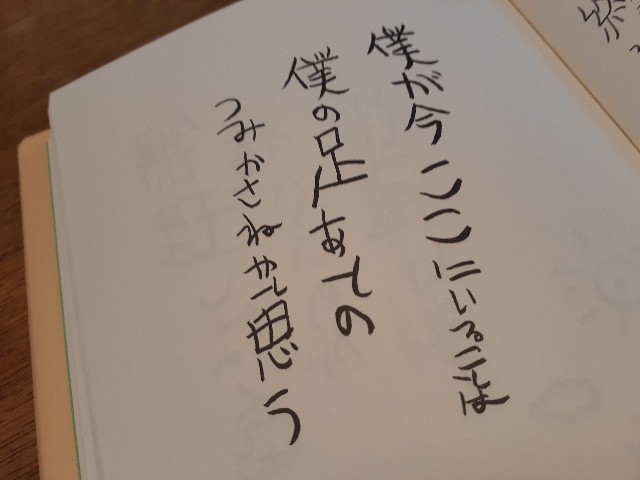 僕が今ここにいることは
僕の足あとの
つみかさねかと思う